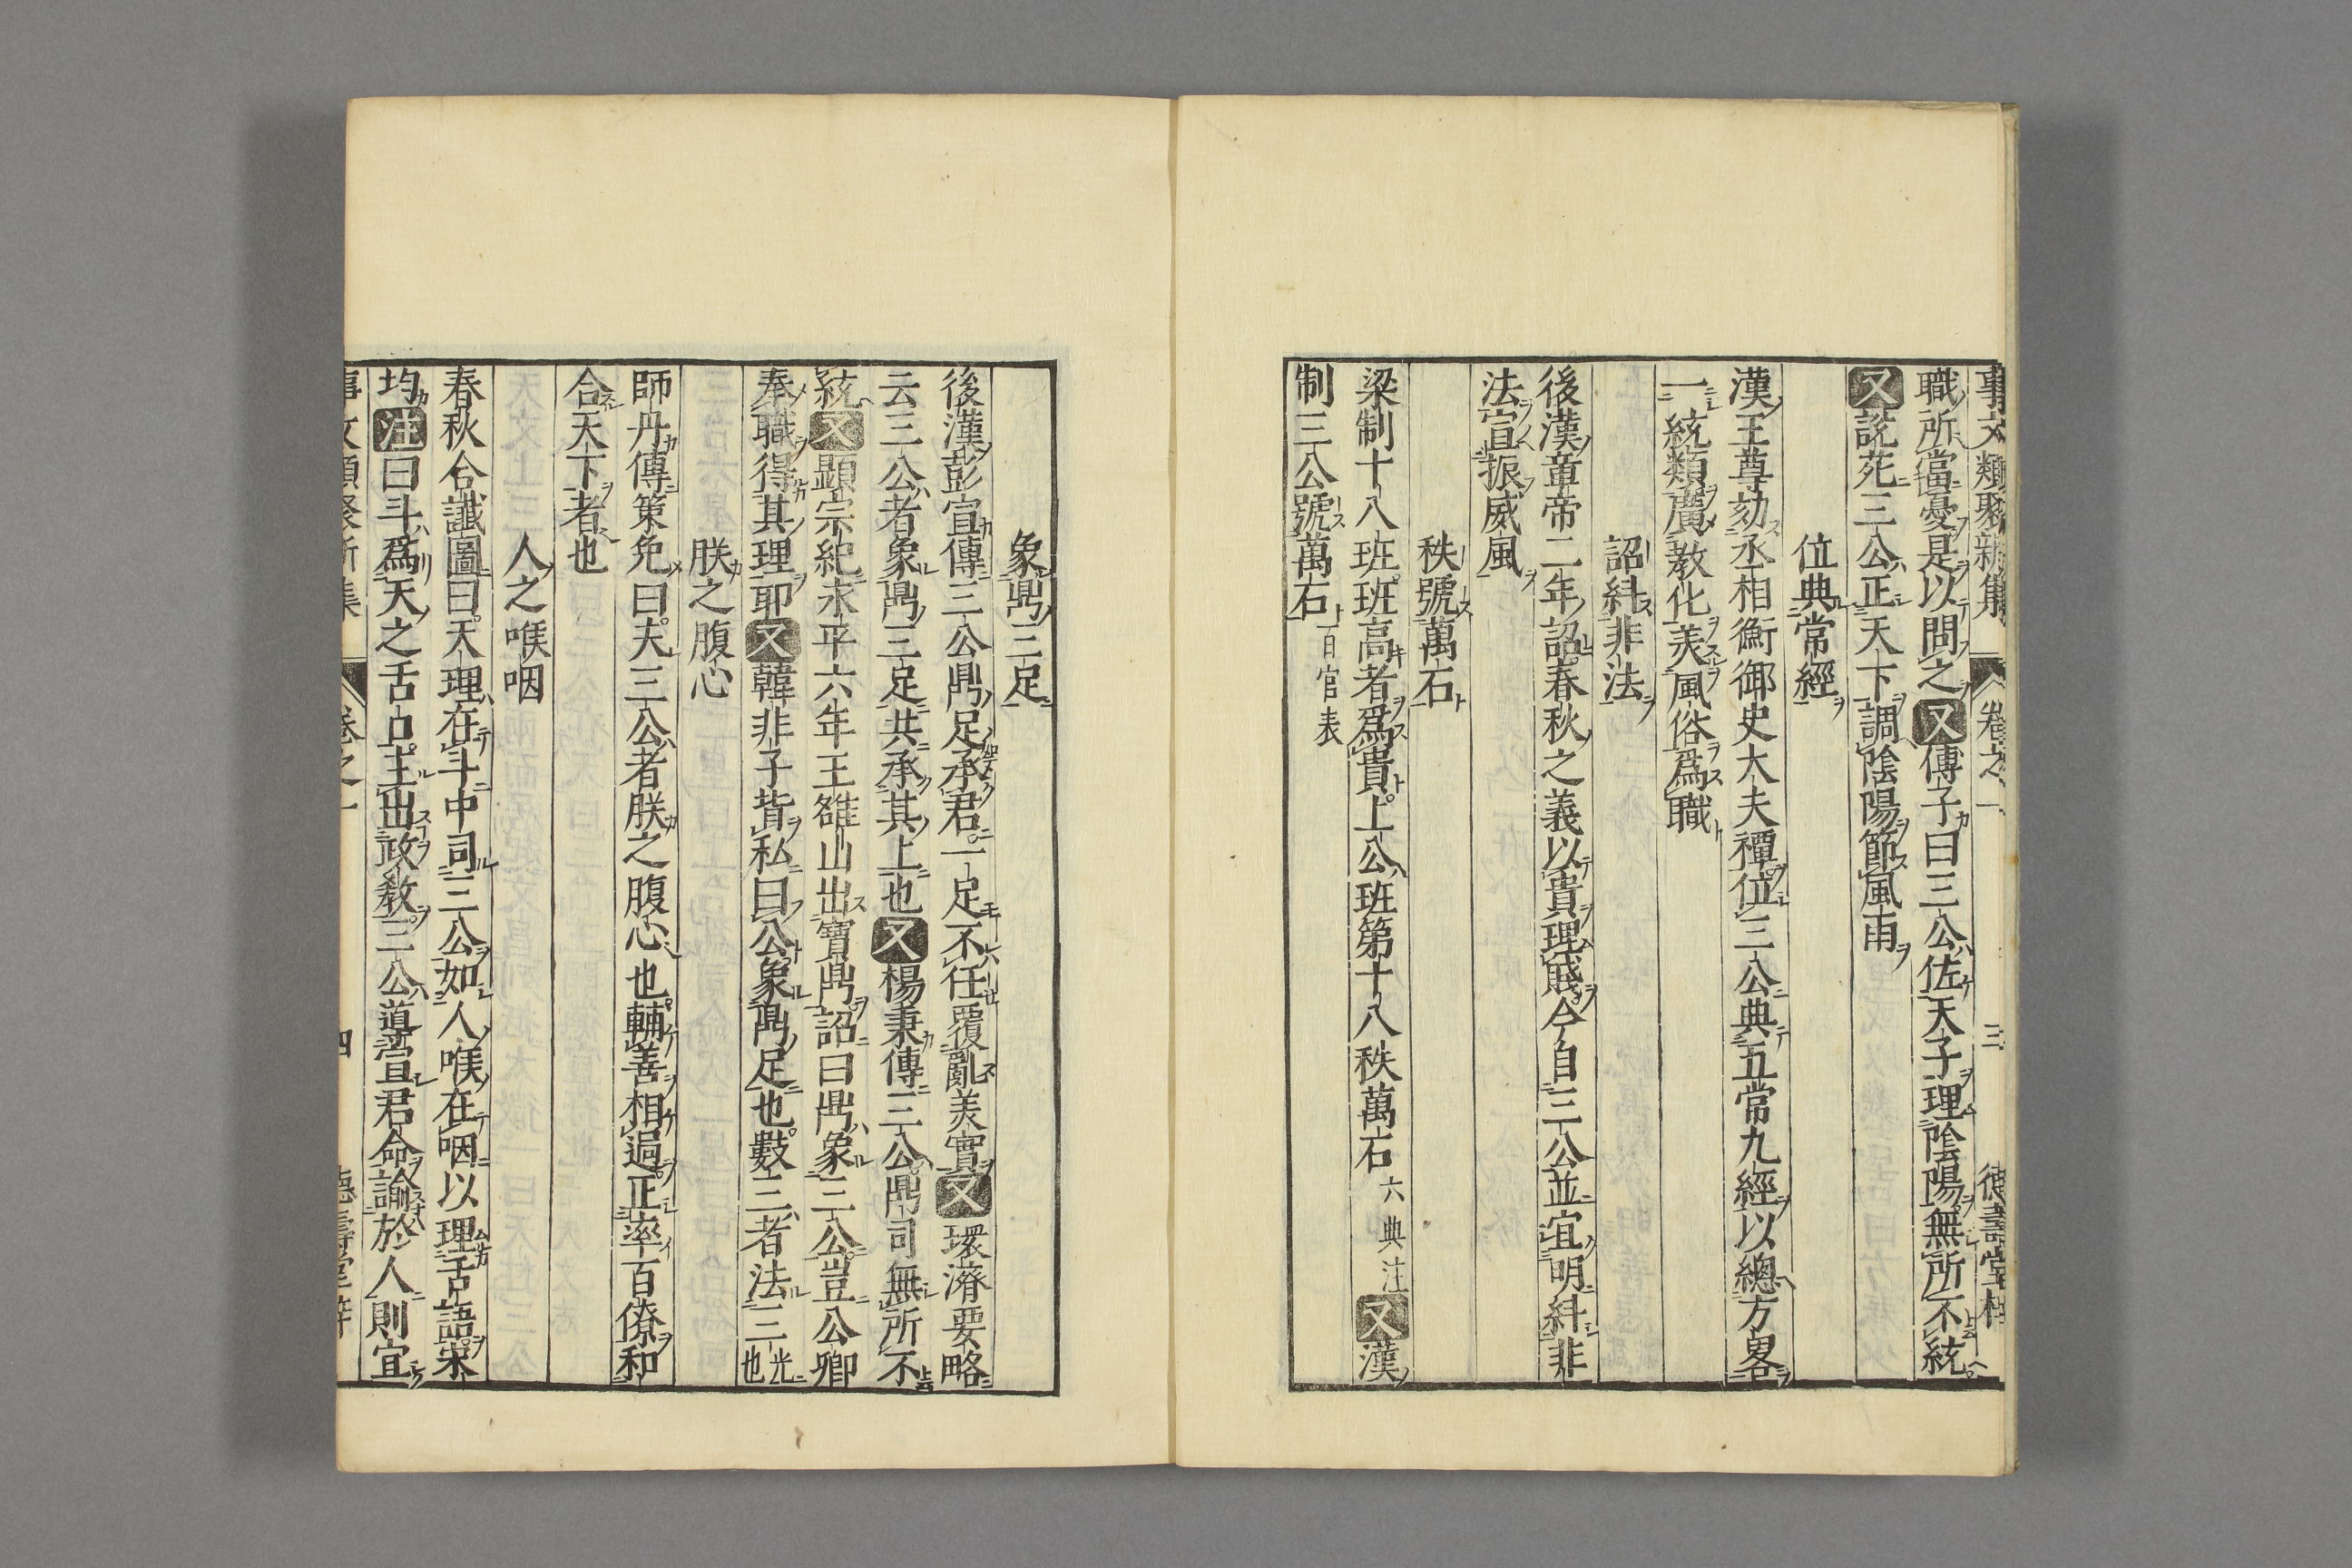 事文類聚新集 卷之一 三 德壽堂梓
職所當憂是以問之又傅子曰三公佐天子理陰陽無所不統
又説苑三公正天下調陰陽節風雨
位典常經
漢王尊劾丞相衡御史大夫譚位三公典五常九經以總方畧
一統類廣教化美風俗爲職
詔糾非法
後漢章帝二年詔春秋之義以貴理賤今自三公並宜明糾非
法宣振威風
秩號萬石
梁制十八班班高者爲貴上公班第十八秩萬石六典注又漢
制三公號萬石百官表
象鼎三足
後漢彭宣傳三公鼎足承君一足不任覆亂美實又環濟要略
云三公者象鼎三足共承其上也又楊秉傳三公鼎司無所不
統又顯宗紀永平六年王雒山出寶鼎詔曰鼎象三公豈公卿
奉職得其理耶又韓非子背私曰公象鼎足也數三者法三光也
朕之腹心
師丹傳策免曰夫三公者朕之腹心也輔善相過正率百僚和
合天下者也
人之喉咽
春秋合讖圖曰天理在斗中司三公如人喉在咽以理舌語宋
均注曰斗爲天之舌口主出政教三公道宣君命諭於人則宜
事文類聚新集 卷之一 四 德壽堂梓